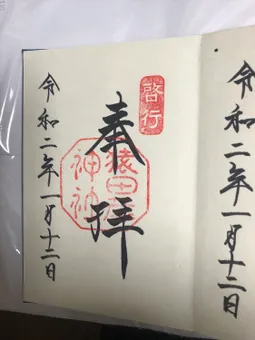 令和二年一月十二日
啓行
奉拝
猿田彦
神社
令和二年一月十二日